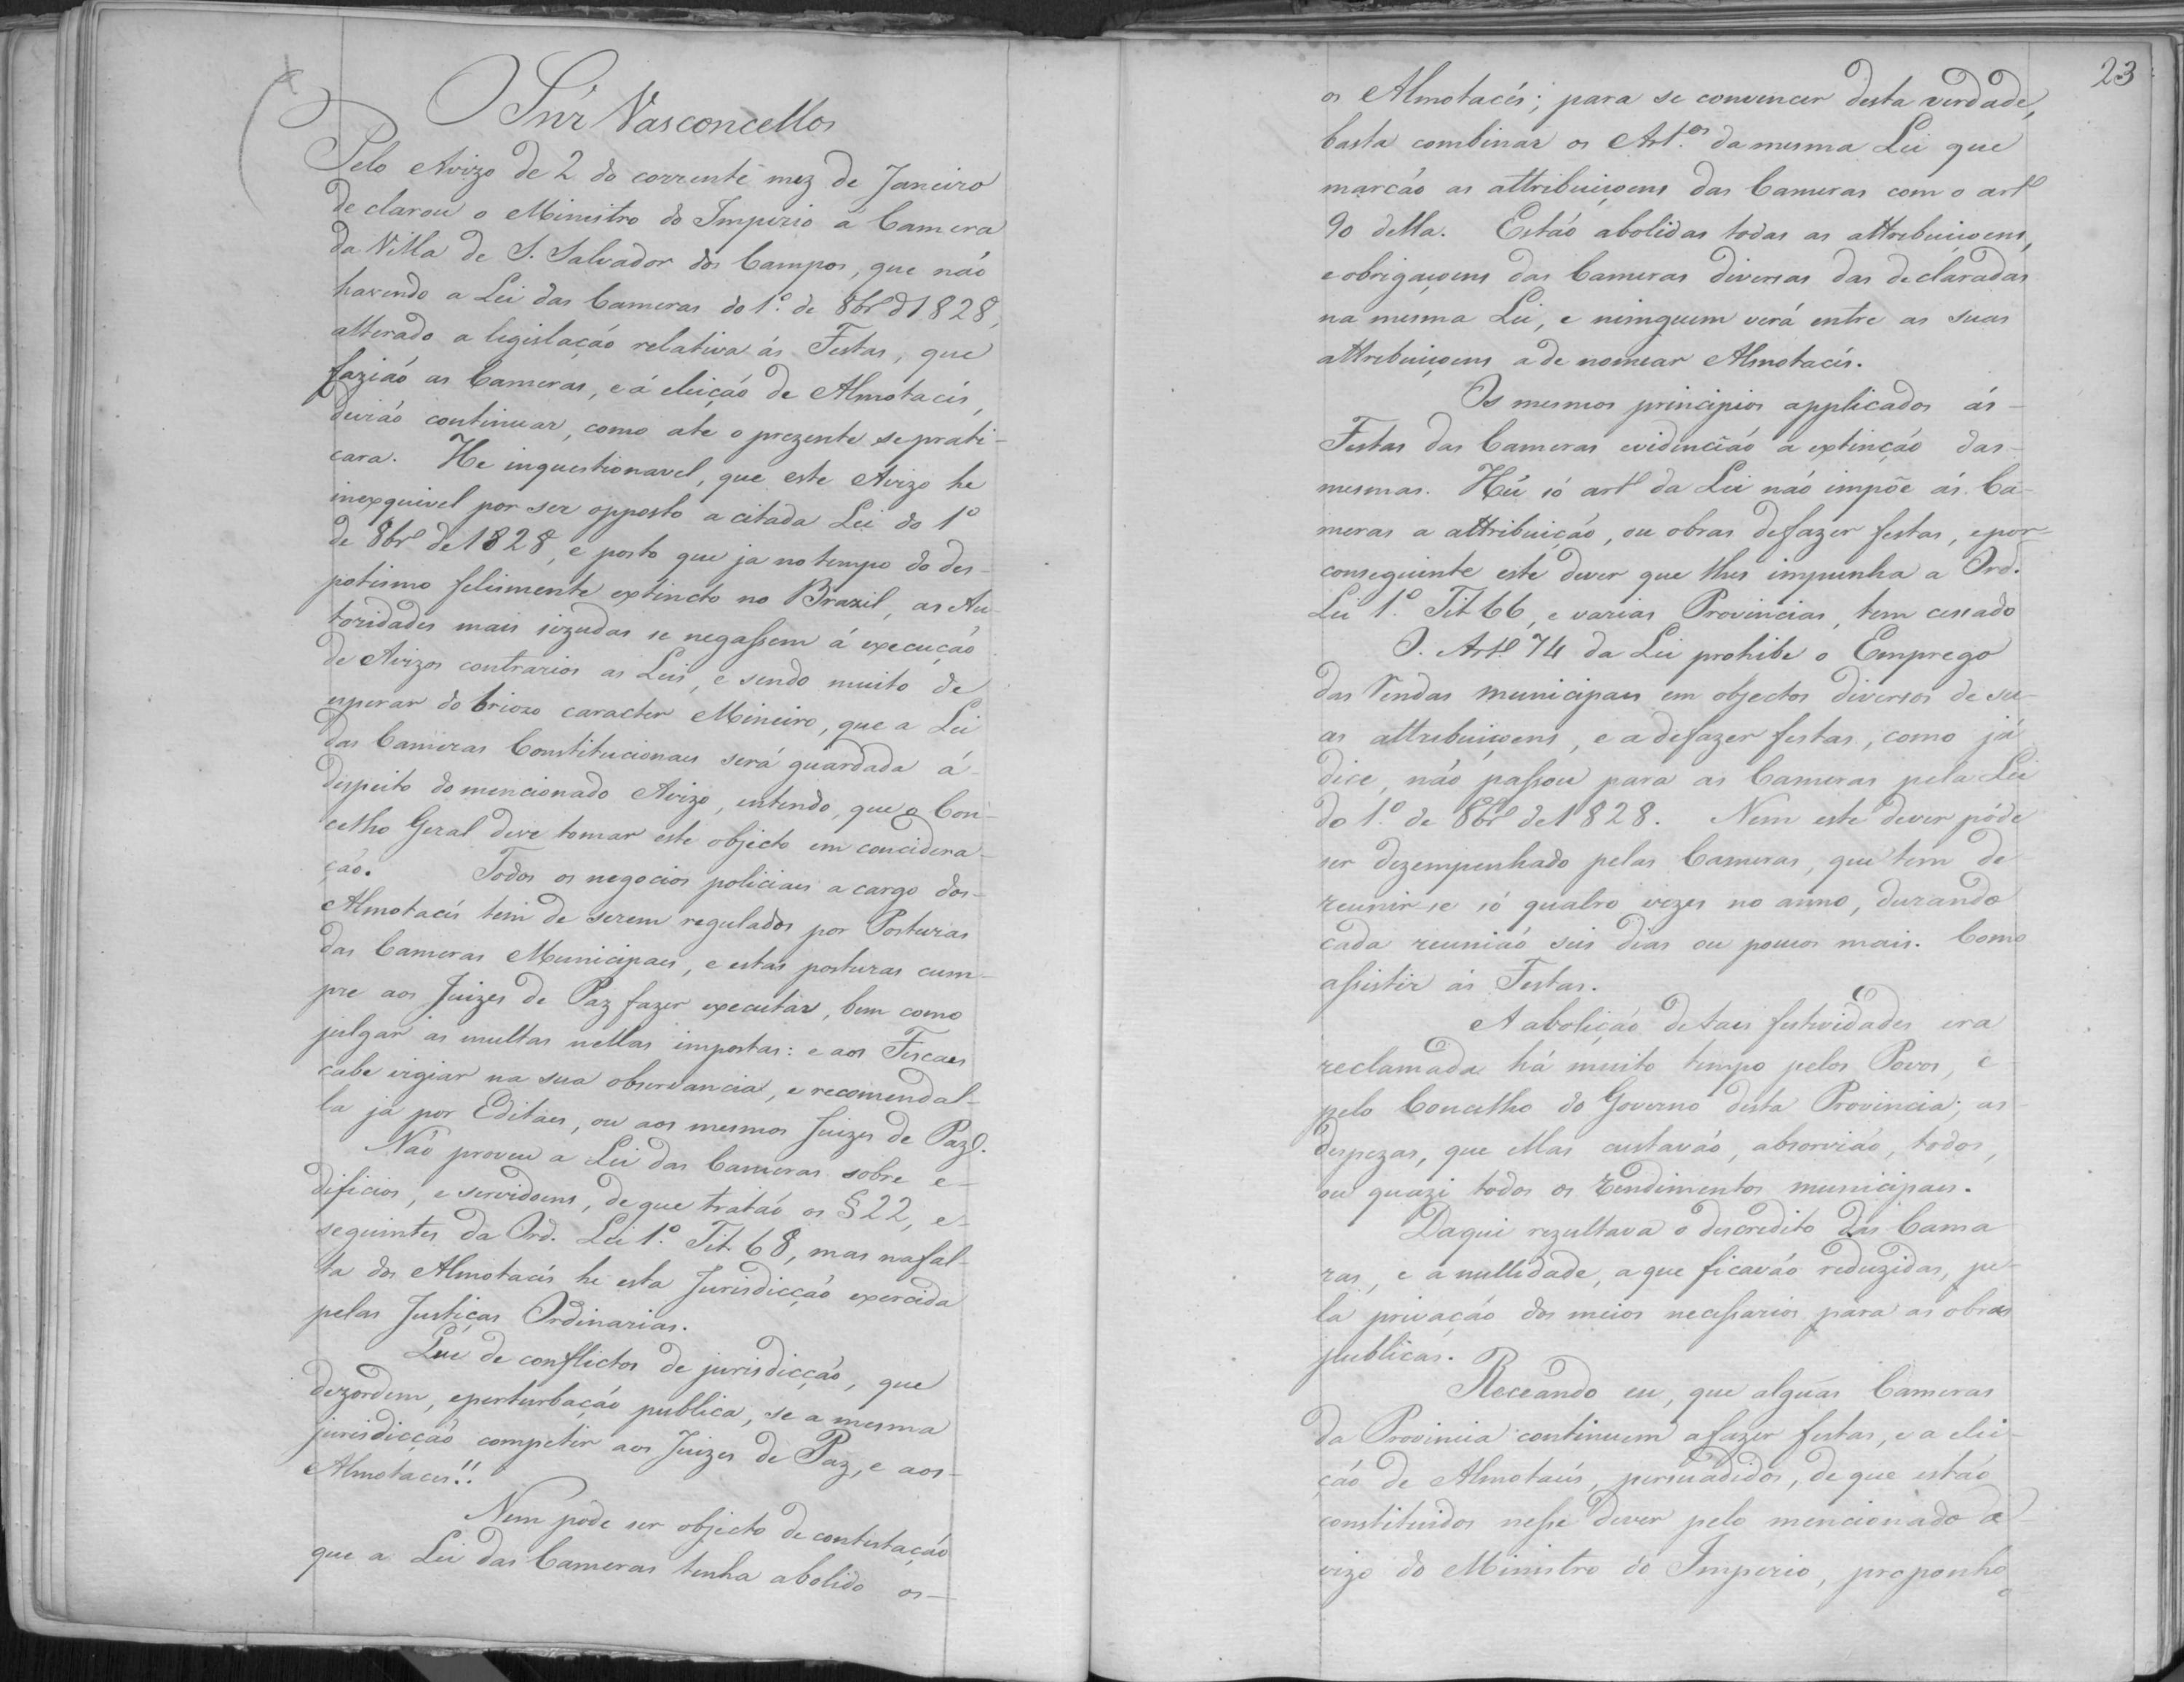 O Snr Vasconcellos
Pelo Avizo de 2 do corrente mez de Janeiro
declarou o Ministro do Imperio á Camera
da Villa de S. Salvador dos Campos, que não
havendo a Lei das Cameras do 1º. de 8brº d 1828,
alterado a legislação relativa ás Festas, que
fazião as Cameras, e á eleição de Almotacés,
devião continuar, como ate o prezente se prati-
cara. He inquestionavel, que este Avizo he
inexquivel por ser opposto a citada Lei do 1º
de 8brº de 1828, e posto que ja no tempo do des-
potismo felismente extincto no Brazil, as Au-
toridades mais sizudas se negassem á execução
de Avizos contrarios as Leis, e sendo muito de
esperar do briozo caracter Mineiro, que a Lei
das Cameras Constitucionaes será guardada á
despeito do mencionado Avizo, entendo, que o Con-
celho Geral deve tomar este objecto em concidera-
ção. Todos os negocios policiaes a cargo dos-
Almotacés tem de serem regulados por Posturas
das Cameras Municipaes, e estas posturas cum-
pre aos Juizes de Paz fazer executar, bem como
julgar as multas nellas impostas: e aos Fiscaes
cabe vigiar na sua observancia, e recomendal-
la já por Editaes, ou aos mesmos Juizes de Paz.
Não proveu a Lei das Cameras sobre e-
dificios, e servidoens, de que tratão os § 22, e-
seguintes da Ord. Lei 1º. Tit 68, mas na fal-
ta dos Almotacés he esta Jurisdicção exercida
pelas Justiças Ordinarias.
Que de conflictos de jurisdicção, que
dezordem, e perturbação publica, se a mesma
jurisdicção competir aos Juizes de Paz, e aos-
Almotaces!!
Nem póde ser objecto de contestação
que a Lei das Cameras tenha abolido os-
23
os Almotacés; para se convencer desta verdade,
basta combinar os Art.os da mesma Lei que
marcão as attribuiçoens das Cameras com o artº
90 della. Estão abolidas todas as attribuiçoens,
e obrigaçoens das Cameras diversas das declaradas
na mesma Lei, e ninguem verá entre as suas
attribuiçoens a de nomear Almotacés.
Os mesmos principios applicados ás-
Festas das Cameras evidencião a extinção das-
mesmas. Hú só artº da Lei não impõe ás Ca-
meras a attribuição, ou obras de fazer festas, e por-
conseguinte este dever que lhes impunha a Ord.
Lei 1º. Tit 66, e varias Provincias, tem cessado
O. Artº. 74 da Lei prohibe o Emprego
das Rendas municipaes em objectos diversos de su-
as attribuiçoens, e a de fazer festas, como já
dice, não passou para as Cameras pela Lei
do 1º. de 8brº de 1828. Nem este dever póde
ser dezempenhado pelas Cameras, que tem de
reunir-se só quatro vezes no anno, durando
cada reunião seis dias ou poucos mais. Como
assistir ás Festas.
A abolição de taes festividades era
reclamada há muito tempo pelos Povos, e-
pelo Concelho do Governo desta Provincia; as
despezas, que ellas custavão, absorvião, todos,
ou quazi todos os rendimentos municipaes.
Daqui rezultava o descredito das Cama
ras, e a nullidade, a que ficavão reduzidas, pe-
la privação dos meios necessarios para as obras
publicas.
Receando eu, que algúas Cameras
da Provincia continuem a fazer festas, e a elei-
ção de Almotacés, persuadidos, de que estão
constituidos nesse dever pelo mencionado A-
vizo do Ministro do Imperio, proponho